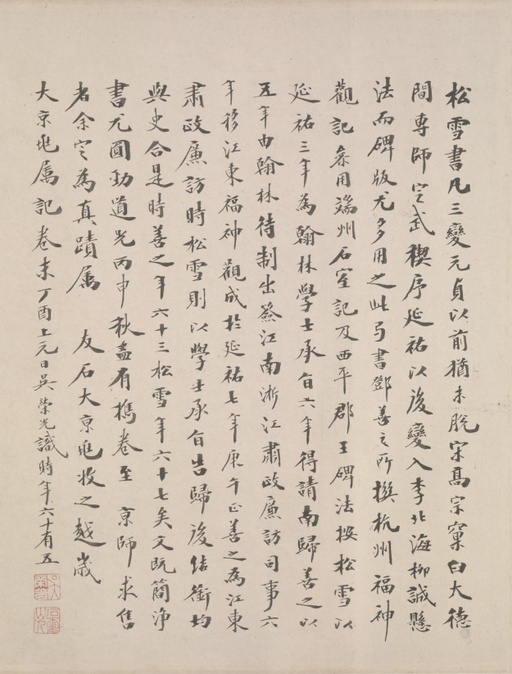 松雪書凡三變元貞以前猶未脫宋高宗窠臼大德
間專師定武稧序延祐以後變入李北海柳誠懸
法而碑版尤多用之此弓書鄧善之所撰杭州福神
觀記參用端州石室記及西平郡王碑法按松雪以
延祐三年為翰林學士承旨六年得請南歸善之以
五年由翰林待制出僉江南浙江肅政廉訪司事六
年移江東福神觀成於延祐七年庚午正善之為江東
肅政廉訪時松雪則以學士承旨告歸後結銜均
與史合是時善之年六十三松雪年六十七矣文既簡淨
書尤圓勁道光丙申秋盡有攜卷至 京師求售
者余定為真蹟屬 友石大京兆收之越歲
大京兆屬記卷末丁酉上元日吳榮光識時年六十有五